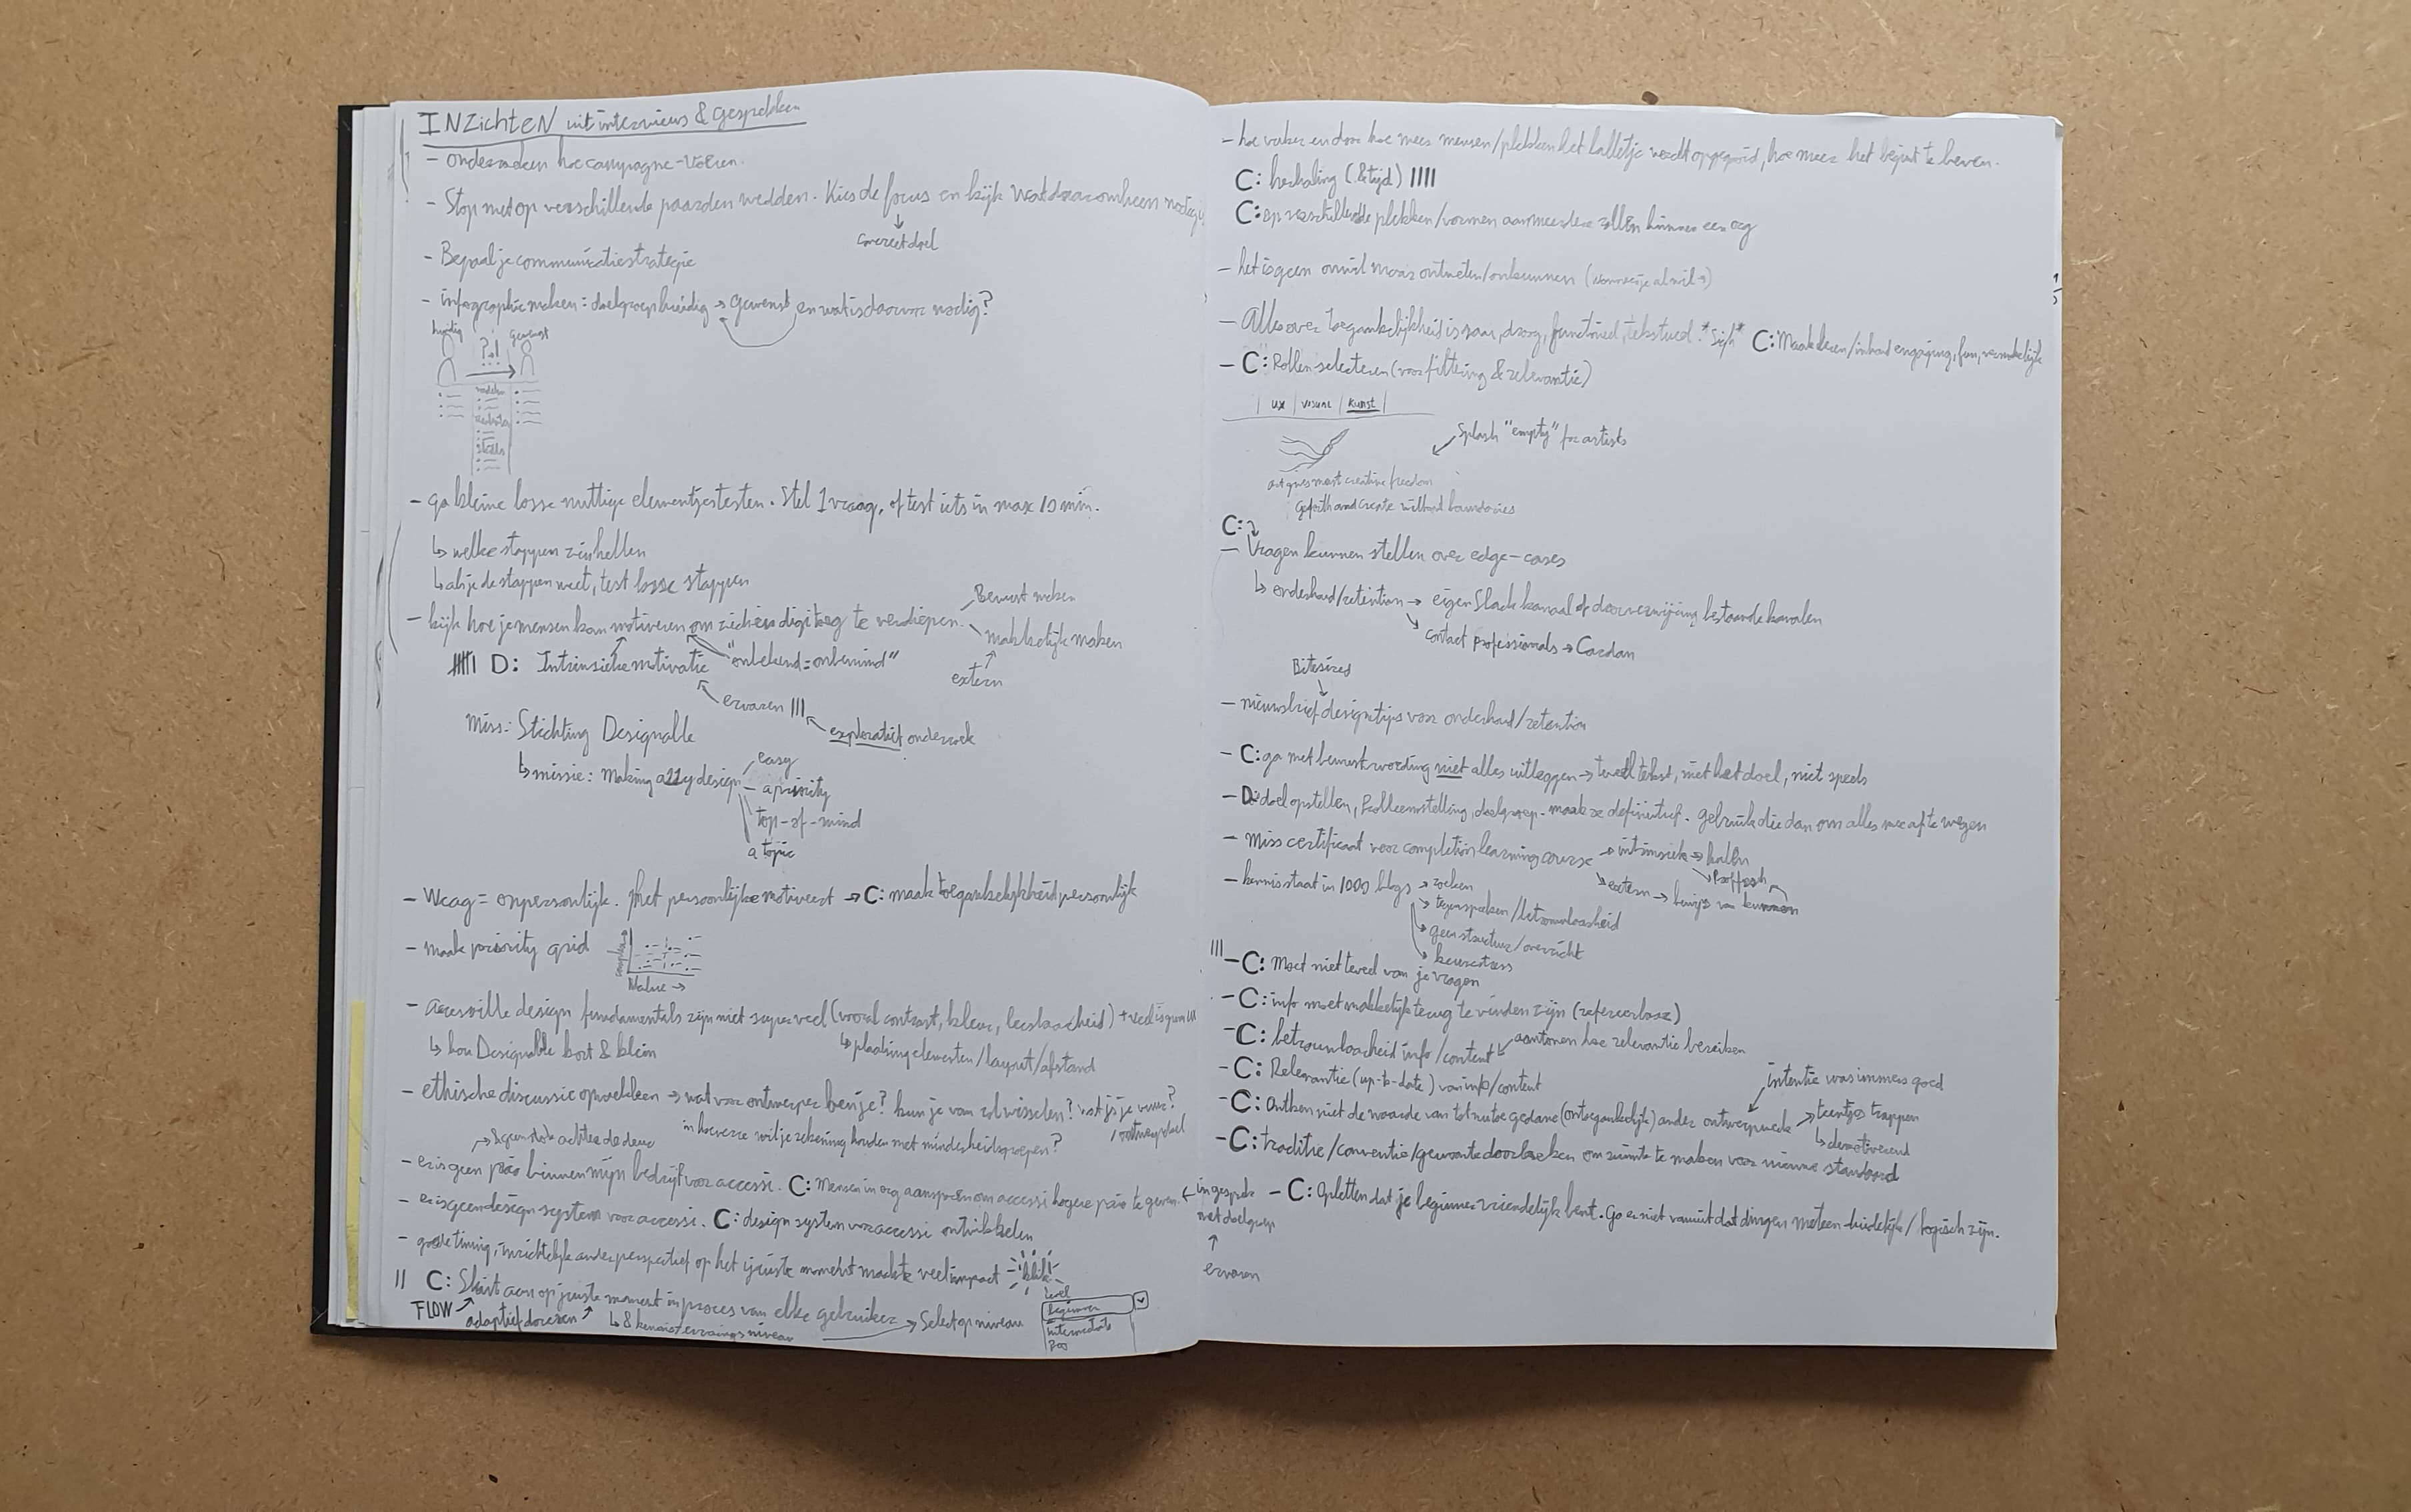 INZICHTEN uit interviews & gesprekken
- onderzoeken hoe campagne-voeren.
- Stop met op verschillende paarden wedden. Kies de focus en kijk wat daaromheen nodig
concreet doel
- Bepaal je communicatiestrategie
- infographic maken: doelgroep huidig → gewenst en wat is daarvoor nodig?
huidig gewenst
?!
- ga kleine losse nuttige elementjes testen. Stel 1 vraag, of test iets in max 10 min.
↳ welke stappen zin hebben
↳ als je de stappen weet, test losse stappen
- kijk hoe je mensen kan motiveren om zich in digitoeg te verdiepen.
Bewust maken
makkelijk maken
extern
D: Intrinsieke motivatie "onbekend = onbemind"
ervaren III
exploratief onderzoek
Miss: Stichting Designable
↳ missie: Making a11y design
easy
a priority
top-of-mind
a topic
- Wcag = onpersoonlijk. het persoonlijke motiveert → C: maak toegankelijkheid persoonlijk
- maak priority grid
Value →
- accessible design fundamentals zijn niet super veel (vooral contrast, kleur, leesbaarheid)
↳ hou Designable kort & klein
↳ plaatsing elementen/layout/afstand
- ethische discussie opwekken → wat voor ontwerper ben je? kun je van rol wisselen? wat is je
in hoeverre wil je rekening houden met minderheidsgroepen?
- er is geen prio binnen mijn bedrijf voor accessi. C: Mensen in org aansporen om accessi hogere prio te geven. ←
- er is geen design system voor accessi. C: design system voor accessi ontwikkelen
- goede timing, inzichtelijk ander perspectief op het juiste moment maakte veel impact
II C: Sluit aan op juiste moment in proces van elke gebruiker
FLOW adaptief doseren ↳ & kennis/ervaringsniveau → Select op niveau
level
Beginner
intermediate
Pro
- hoe vaker en door hoe meer mensen/plekken het balletje wordt opgegooid, hoe meer het begint te leven.
C: herhaling (& tijd) IIII
C: op verschillende plekken/vormen aan meerdere rollen binnen een org
- het is geen onwil maar onweten/onkunnen
- Alles over toegankelijkheid is saai, droog, functioneel, tekstueel. *Sigh* C: Maak leren/inhoud engaging, fun, vermakelijk
- C: Rollen selecteren (voor filtering & relevantie)
| UX | visual | kunst |
Splash "empty" for artists
art gives most creative freedom
Go forth and create without boundaries
C:
- Vragen kunnen stellen over edge-cases
↳ onderhoud/retention → eigen Slack kanaal of doorverwijzing bestaande kanalen
contact professionals → Cardan
Bitesized
- nieuwsbrief designtips voor onderhoud/retention
- C: ga met bewustwording niet alles uitleggen → teveel tekst, niet het doel, niet speels
- D: doel opstellen, Probleemstelling, doelgroep. maak ze definitief. gebruik die dan om alles mee af te wegen
- Miss certificaat voor completion learning course
→ intrinsiek → halen
extern → bewijs van kunnen
- kennis staat in 1000 blogs → zoeken
→ tegenspreken/betrouwbaarheid
→ geen structuur/overzicht
→ keuzestress
III - C: Moet niet teveel van je vragen
- C: info moet makkelijk terug te vinden zijn (refereerbaar)
- C: betrouwbaarheid info/content ↙ aantonen hoe relevantie bereiken
- C: Relevantie (up-to-date) van info/content
intentie was immers goed
- C: Ontken niet de waarde van tot nu toe gedane (ontoegankelijk) ander ontwerpwerk → teentjes trappen
↳ demotiverend
- C: traditie/conventie/gewoonte doorbreken om ruimte te maken voor nieuwe standaard
in gesprek met doelgroep
↑
ervaren
- C: Opletten dat je beginner vriendelijk bent. Ga er niet vanuit dat dingen meteen duidelijk/logisch zijn.